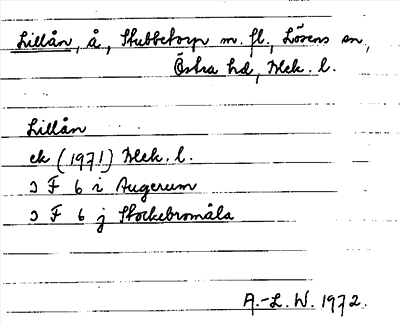 Lillån, å, Stubbetorp m. fl., Lösens sn,
Östra hd, Blek. l.
Lillån
ek (1971) Blek. l.
ɔ F 6 i Augerum
ɔ F 6 j Stockebromåla
A.-L. W. 1972.